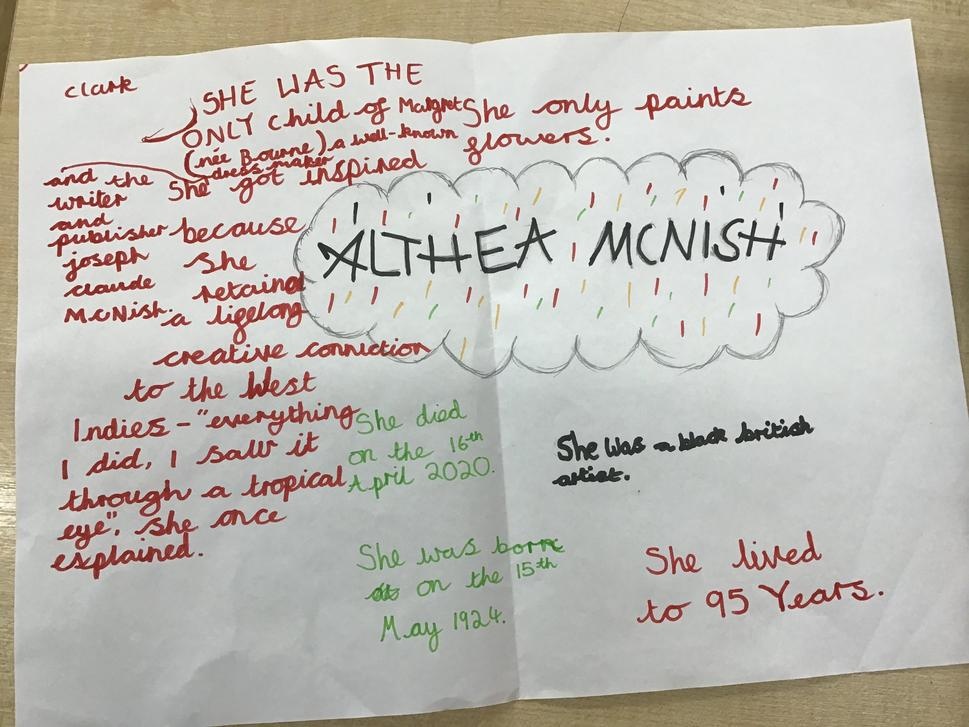 clark
SHE WAS THE
ONLY child of Malgret
(née Bourne) a well-known
dress maker
and the
writer
and
publisher
joseph
claude
McNish.
She only paints
flowers.
She got inspired
because
She
retained
a lifelong
creative conniction
to the West
Indies - "everything
I did, I saw it
through a tropical
eye", she once
explained.
ALTHEA MCNISH
She died
on the 16th
April 2020.
She was a black british
artist.
She was born
on the 15th
May 1924.
She lived
to 95 Years.